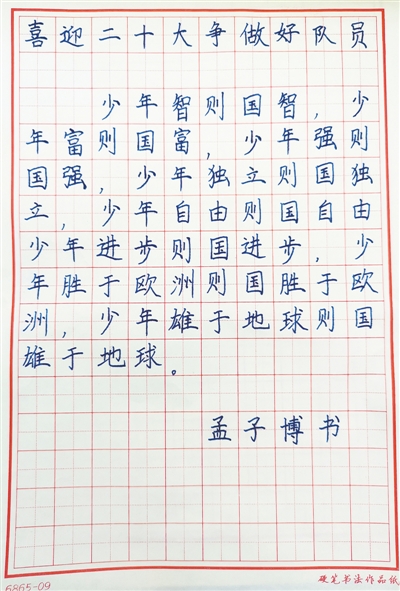 喜迎二十大争做好队员
少年智则国智，少
年富则国富，少年强则
国强，少年独立则国独
立，少年自由则国自由
少年进步则国进步，少
年胜于欧洲则国胜于欧
洲，少年雄于地球则国
雄于地球。
孟子博书
6865-09
硬笔书法作品纸